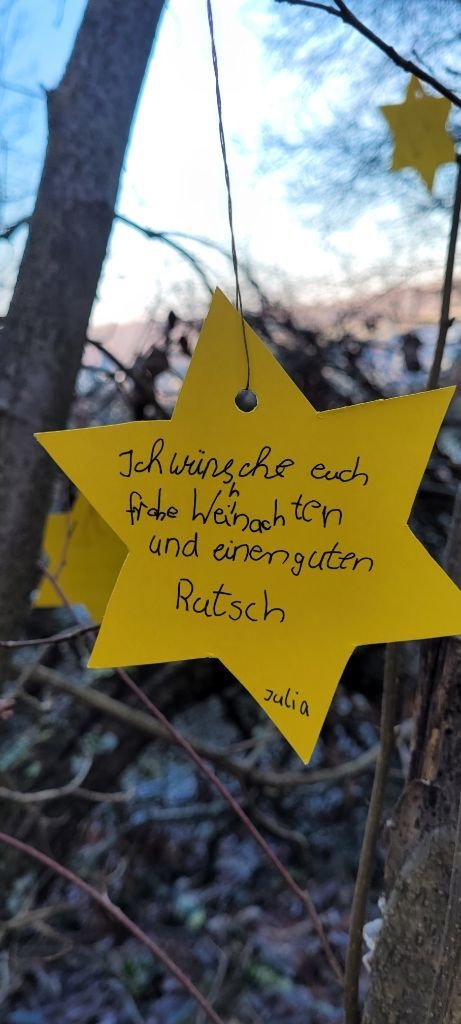 Ich wünsche euch
frohe Weihnachten
und einen guten
Rutsch
Julia